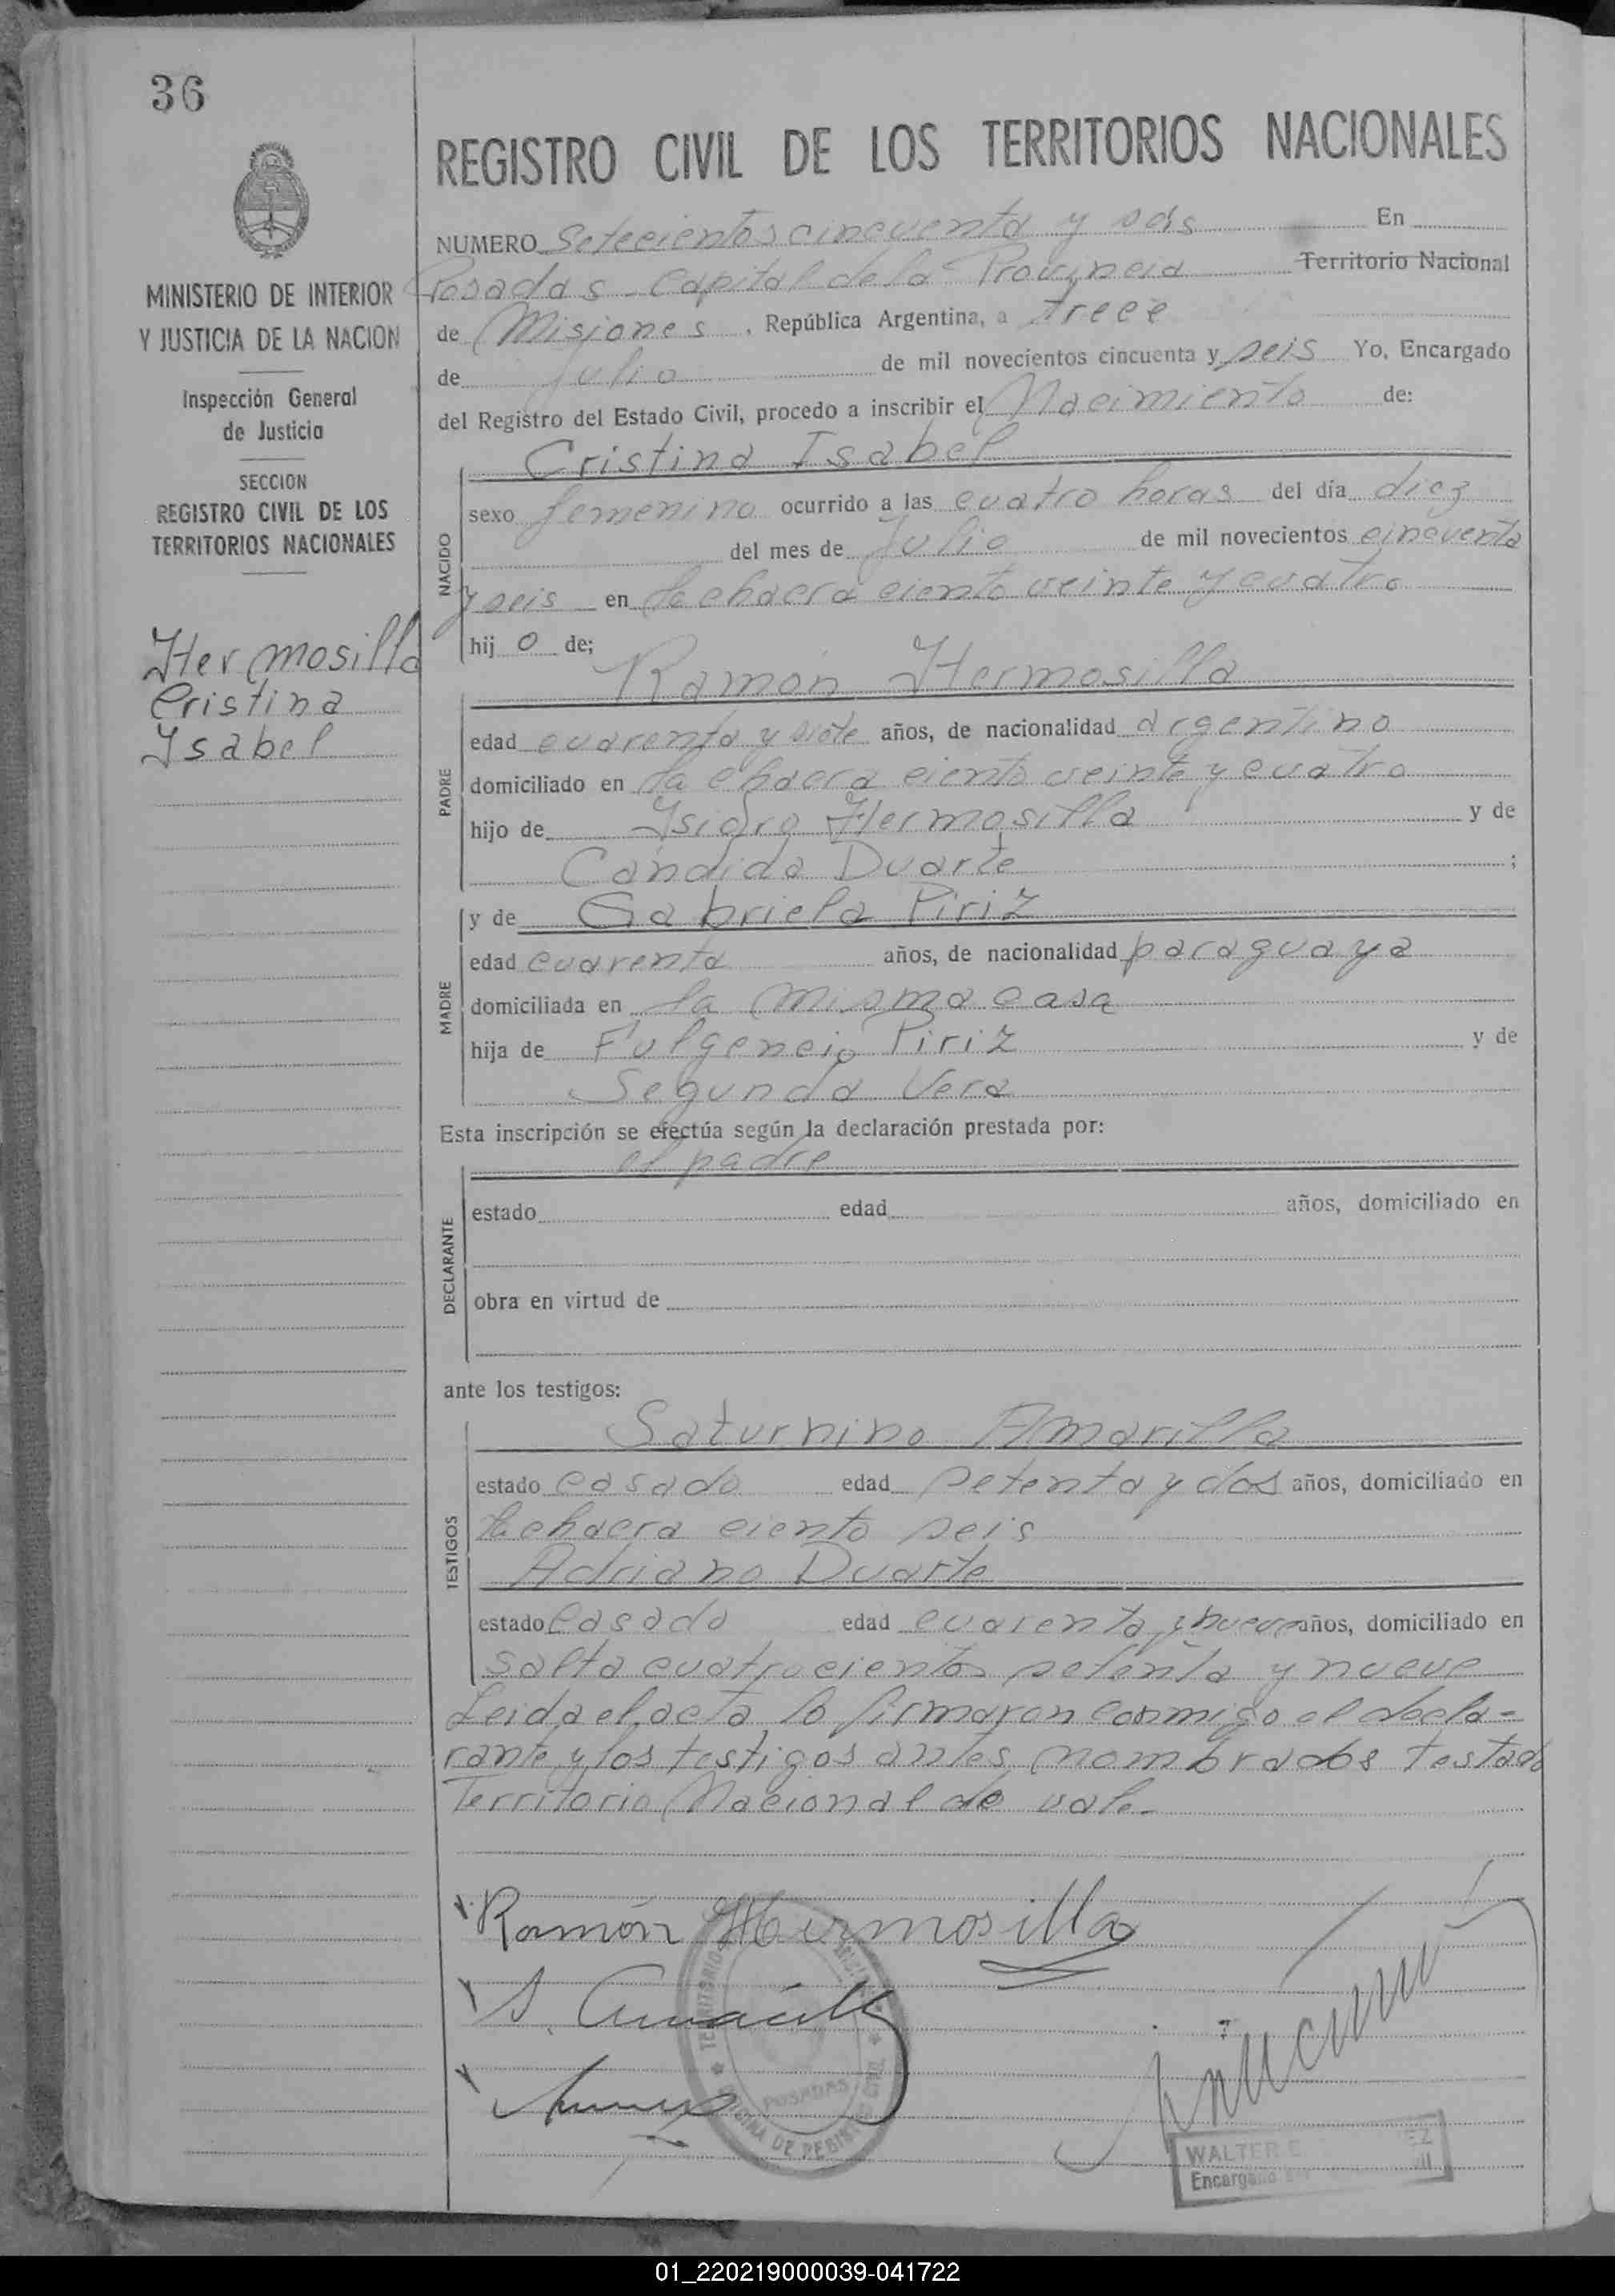 36
MINISTERIO DE INTERIOR
Y JUSTICIA DE LA NACION
Inspección General
de Justicia
SECCION
REGISTRO CIVIL DE LOS
TERRITORIOS NACIONALES
Hermosilla
Cristina
Isabel
REGISTRO CIVIL DE LOS TERRITORIOS NACIONALES
NUMERO Setecientos cincuenta y seis En
Posadas - Capital de la Provincia Territorio Nacional
de Misiones, República Argentina, a trece
de Julio de mil novecientos cincuenta y seis Yo, Encargado
del Registro del Estado Civil, procedo a inscribir el Nacimiento de:
NACIDO
Cristina Isabel
sexo femenino ocurrido a las cuatro horas del día diez
del mes de Julio de mil novecientos cincuenta
y seis en la chacra ciento veinte y cuatro
hij o de;
PADRE
Ramón Hermosilla
edad cuarenta y siete años, de nacionalidad argentino
domiciliado en la chacra ciento veinte y cuatro
hijo de Isidro Hermosilla y de
Cándida Duarte ;
MADRE
y de Gabriela Piriz
edad cuarenta años, de nacionalidad paraguaya
domiciliada en la misma casa
hija de Fulgencio Piriz y de
Segunda Vera
Esta inscripción se efectúa según la declaración prestada por:
DECLARANTE
el padre
estado edad años, domiciliado en
obra en virtud de
ante los testigos:
TESTIGOS
Saturnino Amarilla
estado casado edad setenta y dos años, domiciliado en
la chacra ciento seis
Adriano Duarte
estado casado edad cuarenta y nueve años, domiciliado en
Salta cuatrocientos setenta y nueve
Leida el acta, la firmaron conmigo el decla-
rante y los testigos antes nombrados testado
Territorio Nacional de vale-
Ramón Hermosilla
S. Amarilla
POSADAS
OFICINA DE REGISTRO CIVIL
WALTER E
Encargado
01_220219000039-041722